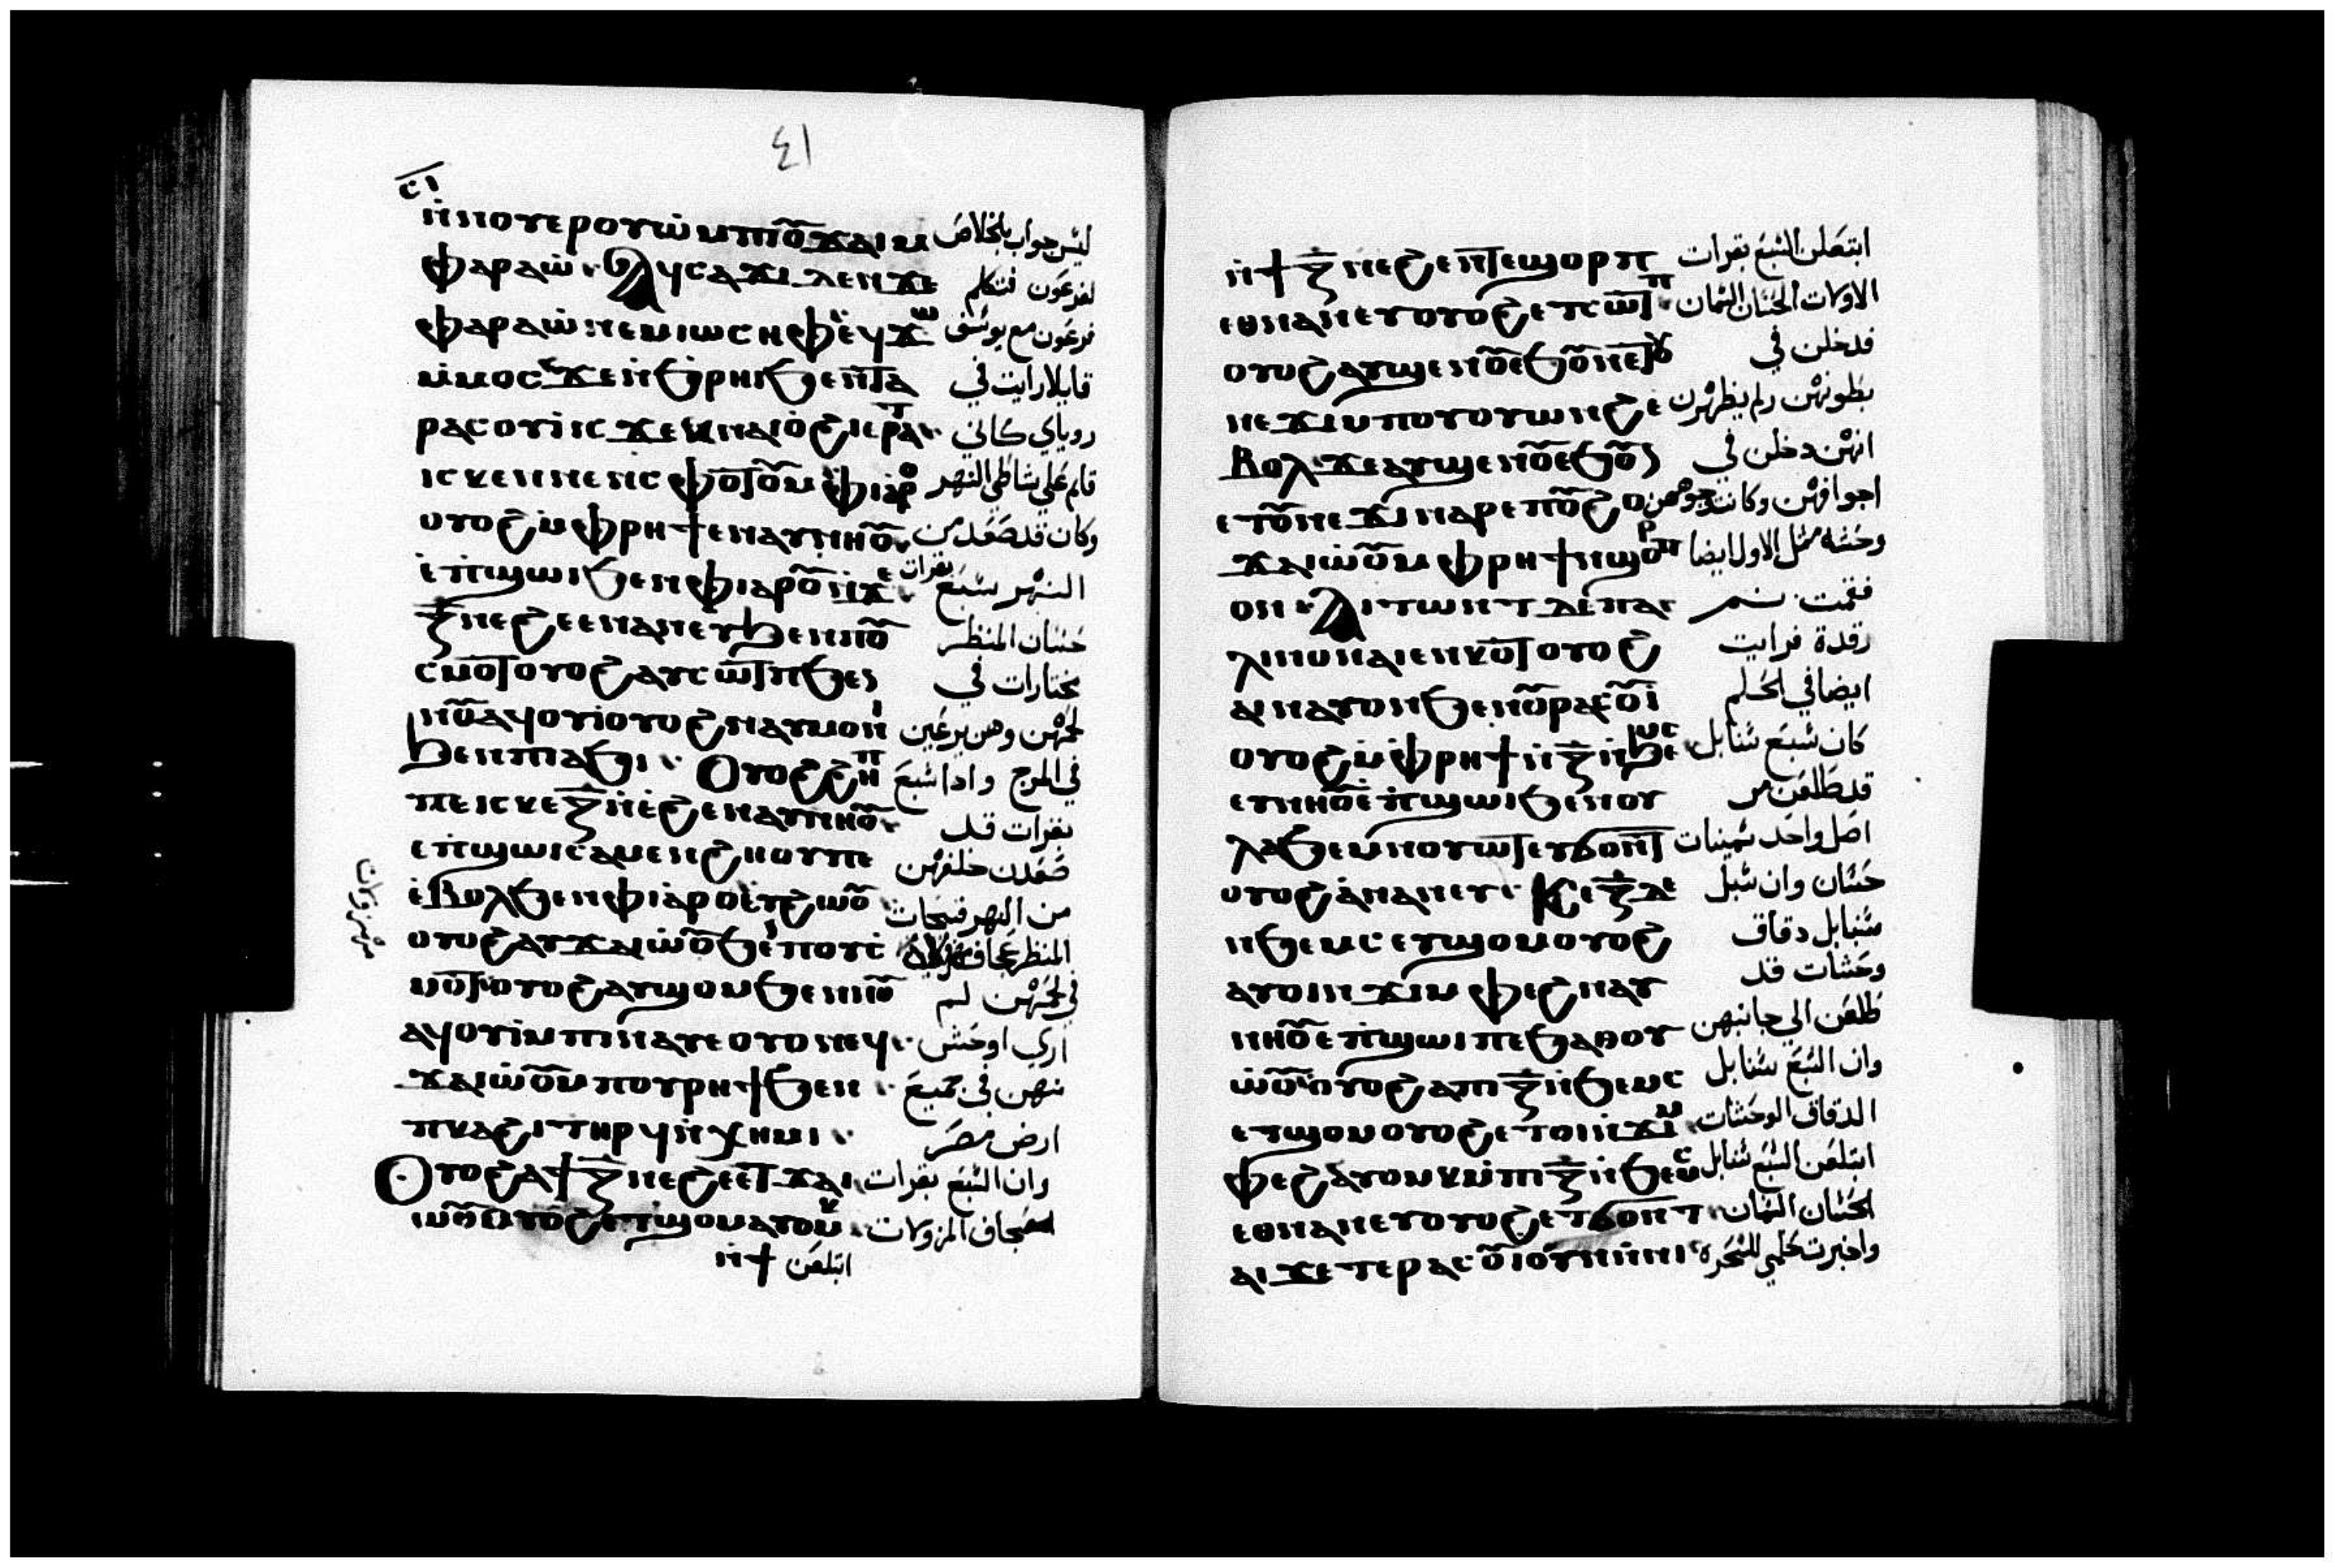 ٤١
ⲥⲓ
ⲛ̀ⲛⲟⲩⲉⲣⲟⲩⲱ̀ ⲙⲡⲟ̅ϫⲁⲓ ⲙ ليس جواب بالخلاص
ⲫⲁⲣⲁⲱ̀ ⲁϥⲥⲁϫⲓ ⲇⲉ ⲛϫⲉ لفرعون فتكلم
ⲫⲁⲣⲁⲱ̀ ⲛⲉⲙ ⲓⲱⲥⲏⲫ ⲉϥϫⲱ فرعون مع يوسف
ⲙ̀ⲙⲟⲥ ϫⲉ ⲛ̀ϧⲣⲏⲓ ϧⲉⲛ ⲧⲁ قايلا رايت في
ⲣⲁⲥⲟⲩⲓ̀ ⲓⲥϫⲉⲕ ⲛⲁⲓⲟ̀ϩⲓ ⲉⲣⲁⲧ روياي كاني
ⲓⲥϫⲉⲛ ⲛⲉⲛⲥⲫⲟⲧⲟⲩ ⲙ̀ⲫⲓⲁⲣⲟ قايم علي شاطي النهر
ⲟⲩⲟϩ ⲙ̀ⲫⲣⲏϯ ⲉⲛⲁⲩⲛⲏⲟⲩ وكان قد صعد من
ⲉ̀ⲡϣⲱⲓ ϧⲉⲛ ⲫⲓⲁⲣⲟ ⲛ̀ϫⲉ النهر سبع بقرات
ⲍ̅ ⲛⲉϩⲉ ⲉⲛⲁⲛⲉⲩ ϧⲉⲛ ⲡⲟⲩ حسان المنظر
ⲥⲙⲟⲧ ⲟⲩⲟϩ ⲁⲩⲥⲱⲧⲡ ϧⲉⲛ مختارات في
ⲛⲟⲩⲁϥⲟⲩⲓ ⲟⲩⲟϩ ⲛⲁⲩⲙⲟⲛⲓ لحمهن وهن يرعين
ϧⲉⲛ ⲡⲓⲁϧⲓ ⲟⲩⲟϩ ϩⲏⲡ في المرج واذا سبع
ⲡⲉ ⲓⲥ ⲕⲉ ⲍ̅ ⲛ̀ⲉ̀ϩⲉ ⲛⲁⲩⲛⲏⲟⲩ بقرات قد
ⲉⲡϣⲱⲓ ⲥⲁⲙⲉⲛϩⲏⲟⲩ ⲡⲉ صعدن خلفهن
ⲉ̀ⲃⲟⲗϧⲉⲛ ⲫⲓⲁⲣⲟ ⲉⲩϩⲱⲟⲩ من النهر قبيحات
ⲟⲩⲟϩ ⲁⲩϫⲁⲓⲱⲟⲩ ϧⲉⲛ ⲡⲟⲩⲥ المنظر عجاف
ⲙⲟⲧ ⲟⲩⲟϩ ⲁⲩϣⲟⲙ ϧⲉⲛ ⲛⲟⲩ في لحمهن لم
ⲁϥⲟⲩⲓ ⲙⲡⲓⲛⲁⲩ ⲉⲟⲩⲟⲛ ⲉϥ اري اوحش
ϫⲁⲓⲱⲟⲩ ⲙⲡⲟⲩⲣⲏϯ ϧⲉⲛ منهن في جميع
ⲡⲕⲁϩⲓ ⲧⲏⲣϥ ⲛ̀ⲭⲏⲙⲓ ارض مصر
ⲟⲩⲟϩ ⲁϯ ⲍ̅ ⲛⲉϩⲉ ⲉⲧϫⲁⲓ وان السبع بقرات
ⲱⲟⲩ ⲟⲩⲟϩ ⲉⲧϣⲟⲙ ⲁⲩⲟⲙⲕ العجاف المزولات
ⲛ̀ϯ ابتلعن
ⲛ̀ϯ ⲍ̅ ⲛⲉϩⲉ ⲛ̀ⲧⲉϣⲟⲣⲡ ابتعلن السبع بقرات
ⲉⲑⲛⲁⲛⲉⲩ ⲟⲩⲟϩ ⲉⲧⲥⲱⲧⲡ الاولات الحسان السمان
ⲟⲩⲟϩ ⲁⲩϣⲉⲛⲱⲟⲩ ⲉϧⲟⲩⲛ ⲉⲧⲟⲩ فدخلن في
ⲛⲉϫⲓ ⲙⲡⲟⲩⲟⲩⲱⲛϩ ⲉ بطونهن ولم يظهرن
ⲃⲟⲗ ϫⲉ ⲁⲩϣⲉⲛⲱⲟⲩ ⲉϧⲟⲩⲛ انهن دخلن في
ⲉⲧⲟⲩⲛⲉϫⲓ ⲛⲁⲣⲉ ⲡⲟⲩϩⲟ اجوافهن وكانت وجوههن
ϫⲁⲓⲱⲟⲩ ⲙⲫⲣⲏϯ ⲛϣⲟⲣⲡ وحشه مثل الاول ايضا
ⲟⲛ ⲁⲓⲧⲱⲛⲧ ⲇⲉ ⲡⲁ فقمت ثم
ⲗⲓⲛ ⲟⲛ ⲁⲓⲉⲛⲕⲟⲧ ⲟⲩⲟϩ رقدة فرايت
ⲁⲓⲛⲁⲩ ⲟⲛ ϧⲉⲛ ⲟⲩⲣⲁⲥⲟⲩⲓ ايضا في الحلم
ⲟⲩⲟϩ ⲙ̀ⲫⲣⲏϯ ⲛ̀ⲍ̅ ⲛ̀ϧⲉⲙⲥ كان سبع سنابل
ⲉⲩⲛⲏⲟⲩ ⲉ̀ⲡϣⲱⲓ ϧⲉⲛ ⲟⲩ قد طلعن من
ⲗⲁϧⲉⲙ ⲛⲟⲩⲱⲧ ⲉⲩϭⲟⲛⲧ اصل واحد سمينات
ⲟⲩⲟϩ ⲉⲛⲁⲛⲉⲩ ⲕⲉ ⲍ̅ ⲇⲉ حسان وان سبل
ⲛϧⲉⲙⲥ ⲉⲩϣⲟⲙ ⲟⲩⲟϩ سنابل دقاق
ⲁⲩⲟⲓ ⲛϫⲓⲙⲫⲉϩ ⲛⲁⲩ وحشات قد
ⲛⲏⲟⲩ ⲉ̀ⲡϣⲱⲓ ⲡⲉ ϧⲁⲑⲟⲩ طلعن الي جانبهن
ⲱⲟⲩ ⲟⲩⲟϩ ⲁⲡⲓ ⲍ̅ ⲛ̀ϧⲉⲙⲥ وان السبع سنابل
ⲉⲧϣⲟⲙ ⲟⲩⲟϩ ⲉⲧⲟⲓ ⲛϫⲓⲙ الدقاق الوحشات
ⲫⲉϩ ⲁⲩⲟⲙⲕ ⲙ̀ⲡⲓ ⲍ̅ ⲛ̀ϧⲉⲙⲥ ابتلعن السبع سنابل
ⲉⲑⲛⲁⲛⲉⲩ ⲟⲩⲟϩ ⲉⲧϭⲟⲛⲧ الحسان السمان
ⲁⲓϫⲉ ⲧⲉⲣⲁⲥⲟⲩⲓ ⲟⲩⲛ ⲛⲛⲓ واخبرت حلمي للسحرة